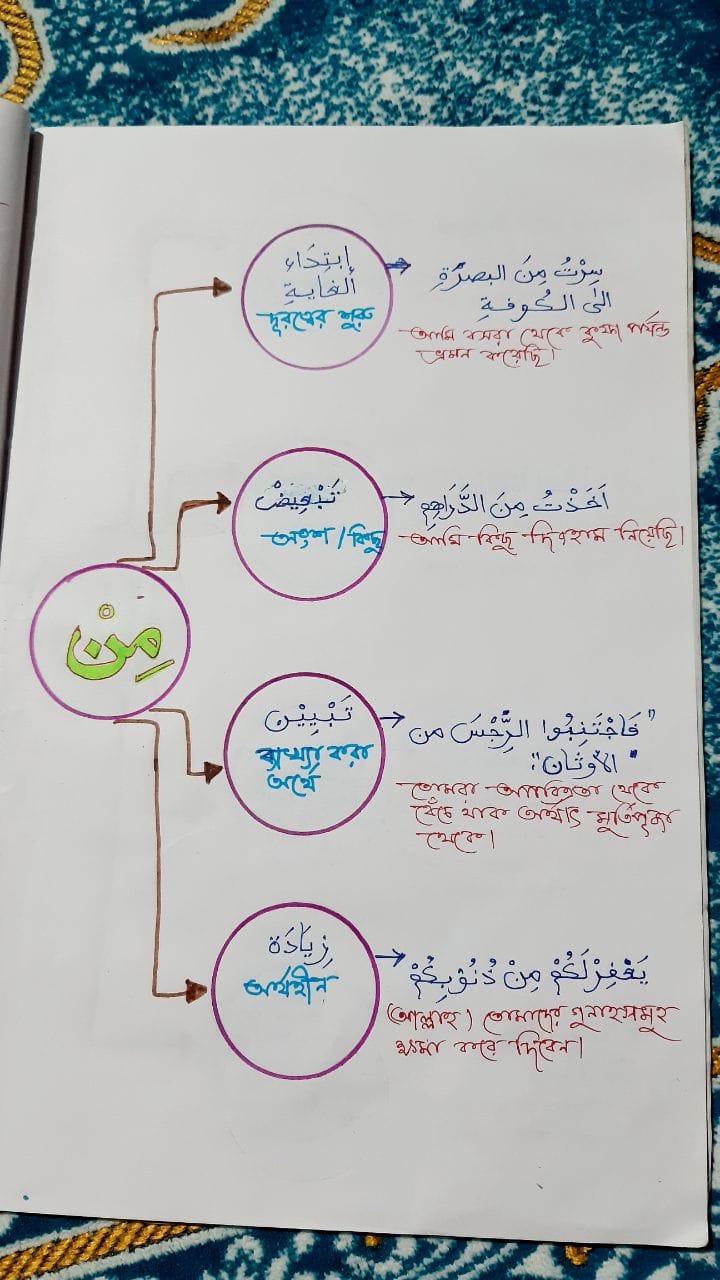 مِنْ
إبتِدَاء
الغايةِ
দূরত্বের শুরু
سِرْتُ مِنَ البصرَةِ
الى الكُوفةِ
আমি বসরা থেকে কুফা পর্যন্ত
ভ্রমন করেছি।
تَبْعِيضْ
অংশ / কিছু
اَخَذْتُ مِنَ الدَّرَاهِمِ
আমি কিছু দিরহাম নিয়েছি।
تَبْيِيْن
ব্যাখ্যা করা
অর্থে
"فَاجْتَنِبُوا الرِّجْسَ من
الأوثَان"
তোমরা অপবিত্রতা থেকে
বেঁচে থাক অর্থাৎ মূর্তিপূজা
থেকে।
زِيَادَة
অর্থহীন
يَغْفِرْلَكُمْ مِنْ ذُنُوْبِكُمْ
(আল্লাহ) তোমাদের গুনাহসমূহ
ক্ষমা করে দিবেন।